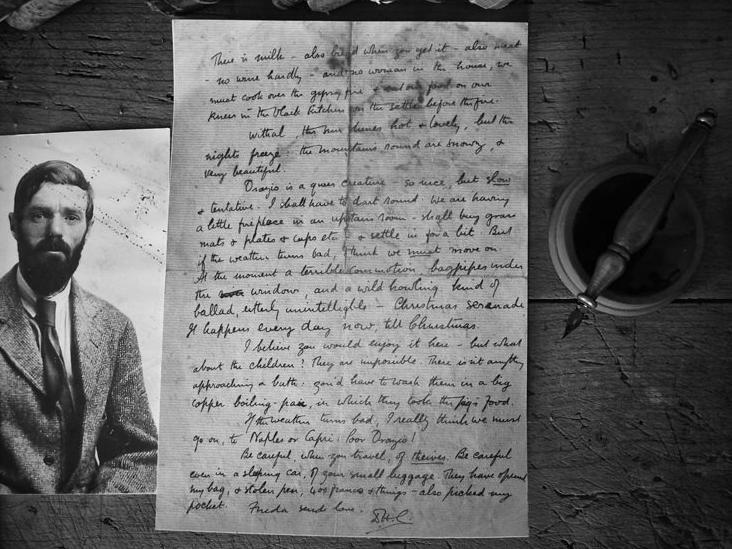 There is milk - also bread when you get it - also meat
- no wine hardly - and no woman in the house, we
must cook over the gipsy fire & eat our food on our
knees in the black kitchen on the settle before the fire.
Withal, the sun shines hot & lovely, but the
nights freeze: the mountains round are snowy, &
very beautiful.
Orazio is a queer creature - so nice, but slow
& tentative. I shall have to dart round. We are having
a little fireplace in an upstairs room - shall buy grass
mats & plates & cups etc - & settle in for a bit. But
if the weather turns bad, I think we must move on.
At the moment a terrible commotion, bagpipes under
the window, and a wild howling kind of
ballad, utterly unintelligible - Christmas serenade
It happens every day now, till Christmas.
I believe you would enjoy it here - but what
about the children! They are impossible. There isn't anything
approaching a bath: you'd have to wash them in a big
copper boiling-pan, in which they cook the pigs' food.
If the weather turns bad, I really think we must
go on, to Naples or Capri. Poor Orazio!
Be careful, when you travel, of theives. Be careful
even in a sleeping car, of your small luggage. They have opened
my bag, & stolen pen, 400 francs & things - also picked my
pocket. Frieda sends love.